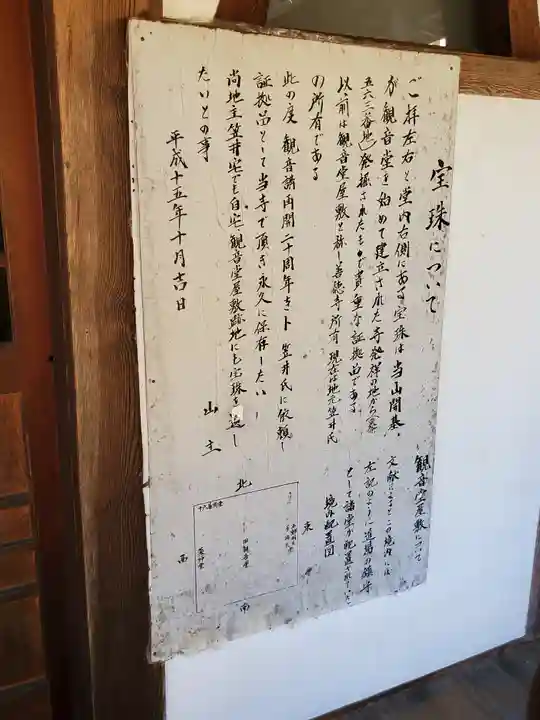 宝珠について
ご拝左右と堂内右側にある宝珠は当山開基、
が観音堂を始めて建立された寺発祥の地から
五六三番地)発掘されたもので貴重な証拠品である
以前は観音堂屋敷と称し善徳寺所有現在は地元笠井氏
の所有である
此の度 観音講内開二十周年を 笠井氏に依頼し
証拠品として当寺で頂き永久に保存したい
尚地主笠井宅でも自宅観音堂屋敷跡地にも宝珠を し
たいとの事
平成十五年十月吉日
山主
観音堂屋敷について
文献によるとこの境内には
左記のように道場の鎮守
として諸堂が配置されていた
境内配置図
北
東
西
南
旧観音堂